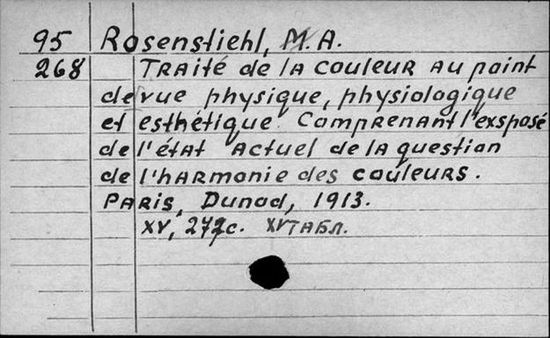 95 Rosenstiehl, M. A.
268 Traité de la couleur au point
de vue physique, physiologique
et esthétique Comprenant l'exsposé
de l'état actuel de la question
de l'harmonie des couleurs.
Paris, Dunod, 1913.
XV, 272c. XV табл.